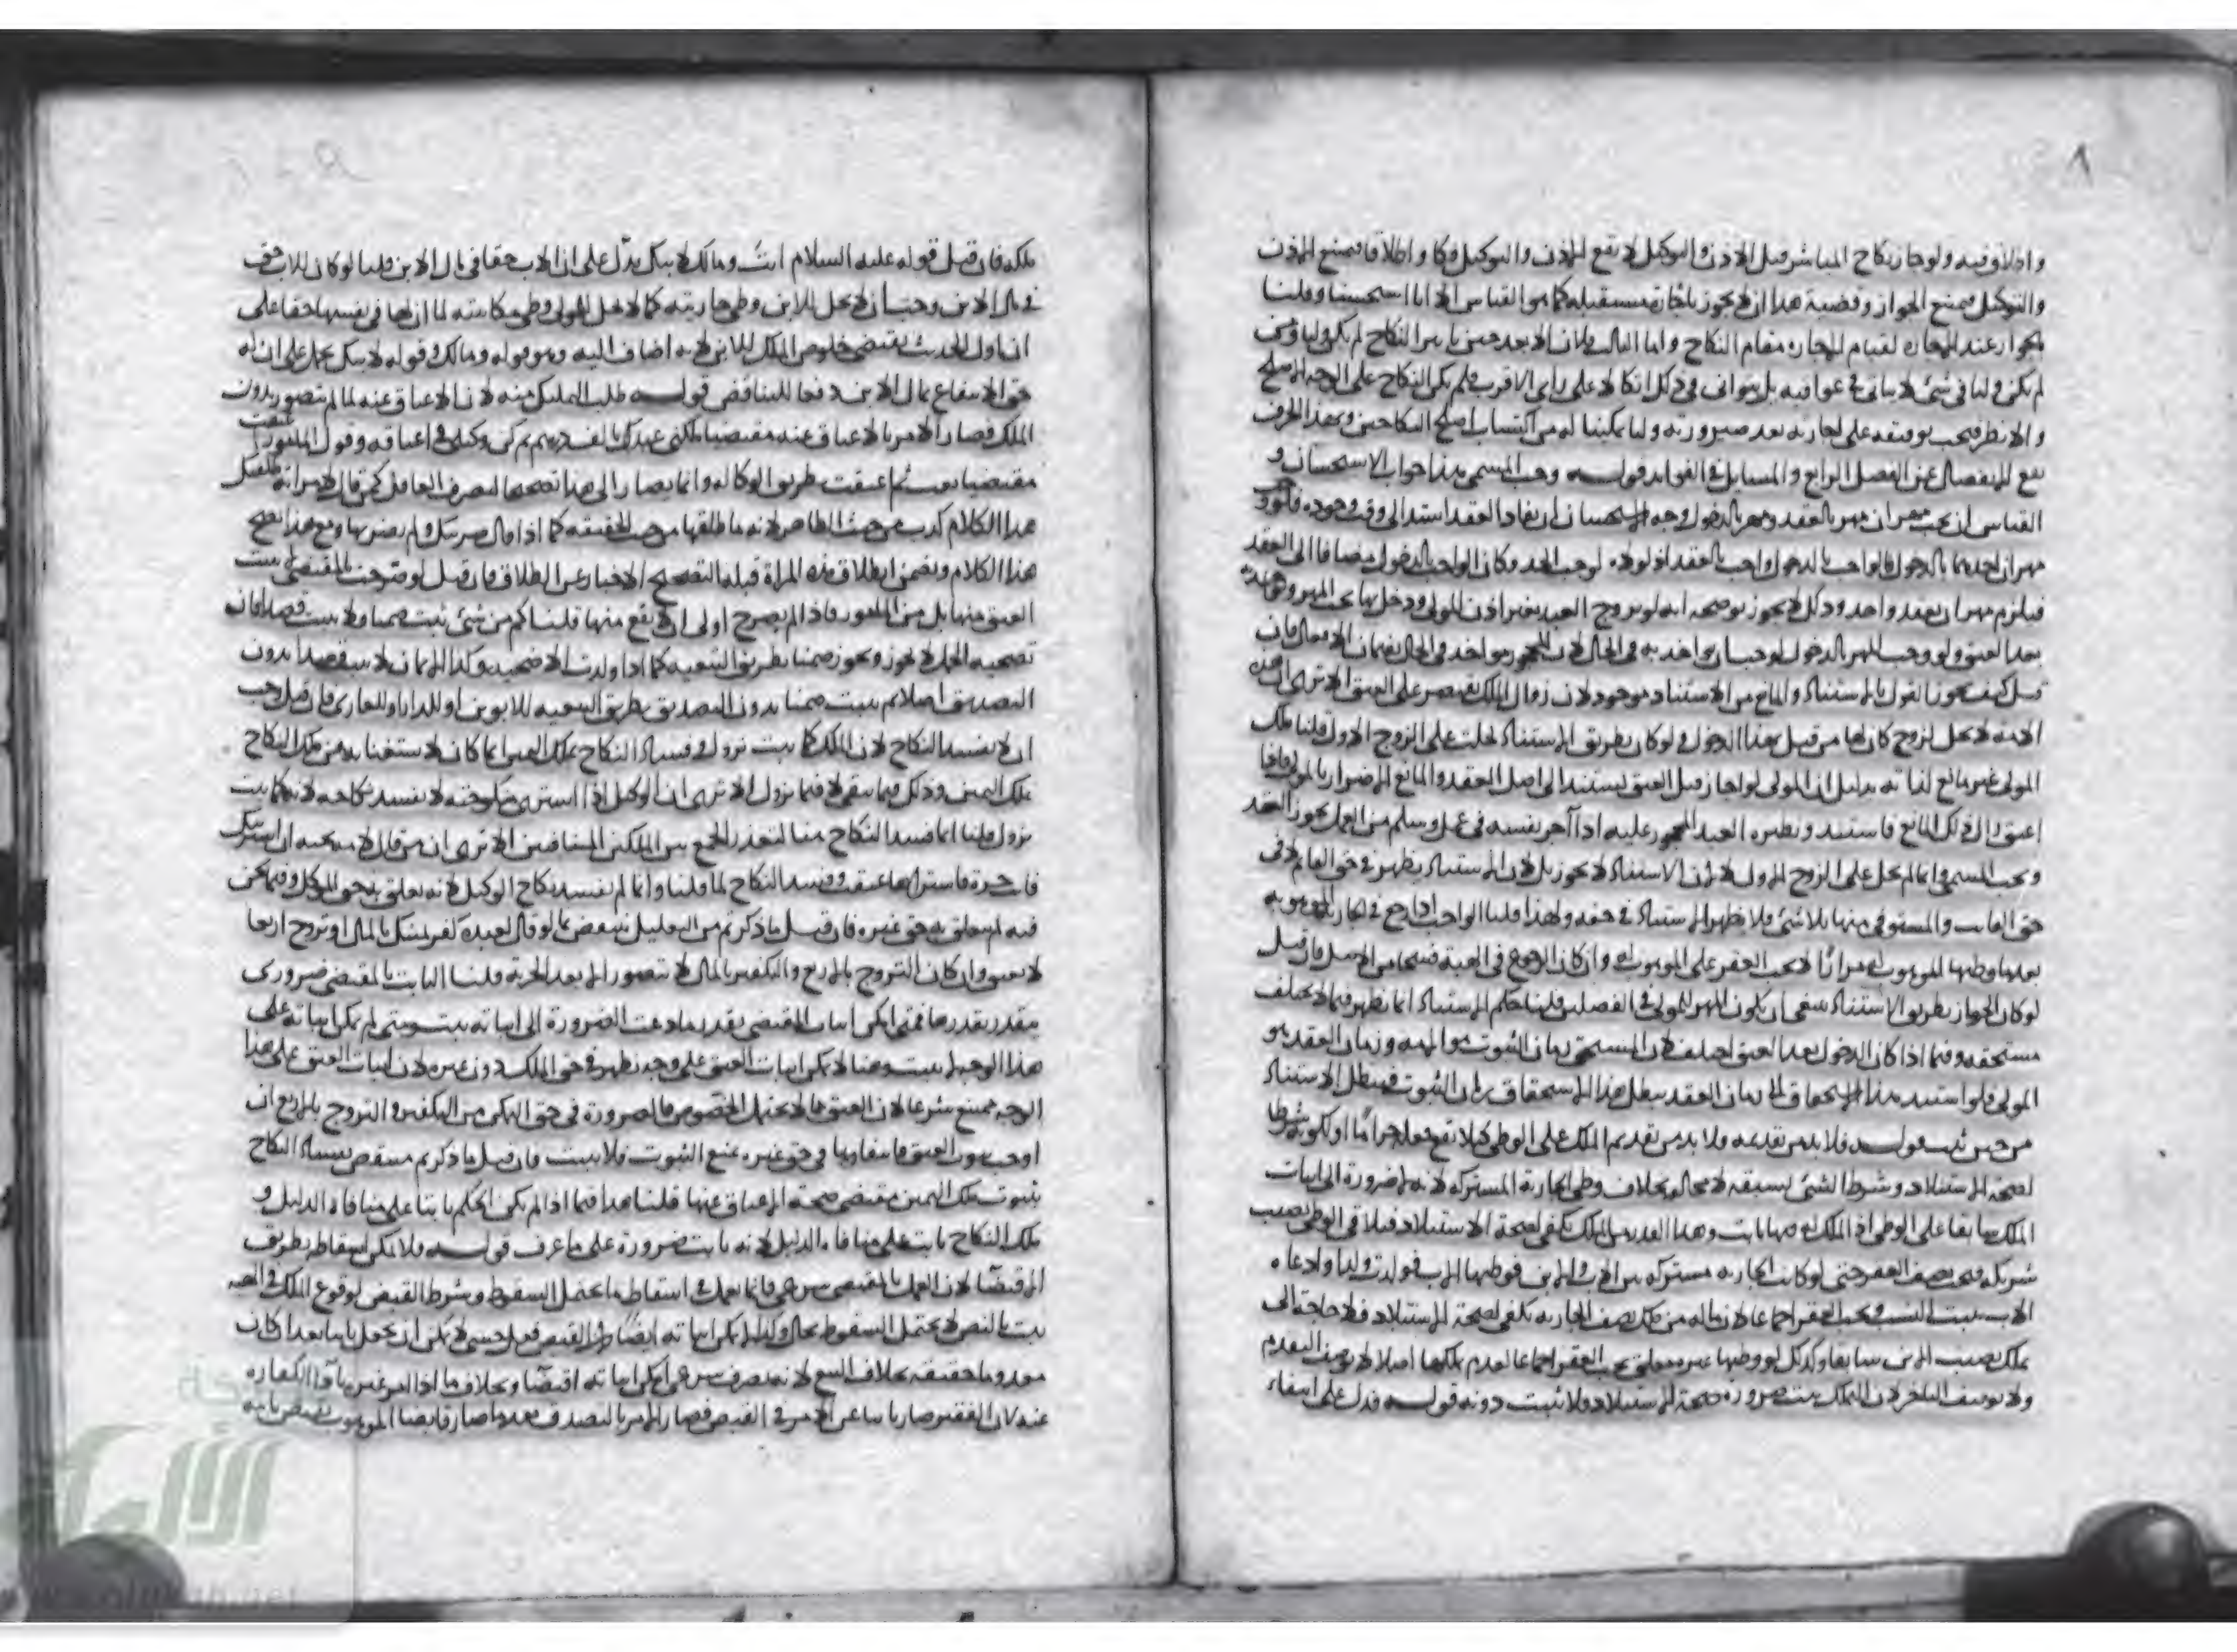 ٨
واطلاق فيه ولو جاز نكاح المباشر قبل الاذن والتوكيل لا يقع الاذن والتوكيل فكا واطلاقا فيمتنع الاذن
والتوكيل فيمتنع الجواز وقضية هذا ان لا يجوز باجازة مستقبلة كما هو القياس الا انا استحسنا وقلنا
بالجواز عند الاجازة لقيام الاجازة مقام النكاح واما الثالث فلان الابعد حين باشر النكاح لم يكن وليا ومن
لم يكن وليا في شئ لا يبالي في عواقبه بل يتوانى في ذلك اتكالا على رأي الاقرب فلم يكن النكاح على الوجه الاصلح
والانظر فيجب توقفه على اجازته بعد صيرورته وليا تمكينا له من اكتساب اصلح النكاحين وبهذا الحرف
يقع الانفصال عن الفصل الرابع والمسايل في الفوايد قوله وجب المسمى هذا جواب الاستحسان و
القياس ان يجب مهران مهر بالعقد ومهر بالدخول وجه الاستحسان ان نفاذ العقد استند الى وقت وجوده فلو وجب
مهران احدهما بالدخول فالواجب بالدخول واجب بالعقد اذ لولاه لوجب الحد وكان الواجب بالدخول مضافا الى العقد
فيلزم مهران بعقد واحد وذلك لا يجوز يوضحه انه لو تزوج العبد بغير اذن المولى ودخل بها يجب المهر
بعد العتق ولو وجب المهر بالدخول لوجب ان يؤاخذ به في الحال لان المحجور يؤاخذ في الحال بضمان الافعال فان
قيل كيف يجوز القول بالاستناد والمانع من الاستناد موجود لان زوال الملك يقتصر على العتق الا ترى ان هذه
الامة لا تحل لزوج كان لها من قبل بهذا الدخول ولو كان بطريق الاستناد لحلت على الزوج الاول قلنا ملك
المولى غير مانع لذاته بدليل ان المولى لو اجاز قبل العتق يستند الى اصل العقد والمانع الاضرار بالمولى فاذا
اعتق زال ذلك المانع فاستند ونظيره العبد المحجور عليه اذا آجر نفسه في عمل وسلم من العمل يجوز العقد
ويجب المسمى وانما لم تحل على الزوج الاول لا لان الاستناد لا يجوز بل لان الاستناد يظهر في حق القايم لا في
حق الفايت والمستوفى منها تلاشى فلا يظهر الاستناد في حقه ولهذا قلنا الواهب اذا رجع في الجارية الموهوبة
بعد ما وطئها الموهوب له مرارا لا يجب العقر على الموهوب له وان كان الرجوع في الهبة فسخا من الاصل فان قيل
لو كان الجواز بطريق الاستناد ينبغي ان يكون المهر للمولى في الفصلين قلنا حكم الاستناد انما يظهر فيما لا يختلف
مستحقه وفيما اذا كان الدخول بعد العتق اختلف لان المستحق زمان الثبوت هو الامة وزمان العقد هو
المولى فلو استند هذا الاستحقاق الى زمان العقد يبطل هذا الاستحقاق زمان الثبوت فيبطل الاستناد
من حيث ثبت قوله فلا بد من تقديمه ولا بد من تقديم الملك على الوطئ كيلا يقع فعله حراما او لكونه شرطا
لصحة الاستيلاد وشرط الشئ يسبقه لا محالة بخلاف وطئ الجارية المشتركة لانه لا ضرورة الى اثبات
الملك سابقا على الوطئ اذ الملك له فيها ثابت وهذا القدر من الملك يكفي لصحة الاستيلاد فيلاقي الوطئ نصيب
شريكه فيجب نصف العقر حتى لو كانت الجارية مشتركة بين الاب والابن فوطئها الاب فولدت ولدا وادعاه
الاب يثبت النسب ويجب العقر اجماعا لان ماله من ملك نصف الجارية تكفي لصحة الاستيلاد فلا حاجة الى
تملك نصيب الابن سابقا وكذلك لو وطئها غير معلق يجب العقر اجماعا لعدم تملكها اصلا لا بوصف التقدم
ولا بوصف التاخر لان التملك يثبت ضرورة صحة الاستيلاد فلا يثبت دونه قوله فدل على انتفاء
ملكه فان قيل قوله عليه السلام انت ومالك لابيك يدل على ان للاب حقا في مال الابن قلنا لو كان للاب حق
في مال الابن وجب ان لا يحل للابن وطئ جاريته كما لا يحل للمولى وطئ مكاتبته لما ان لها في نفسها حقا على
ان اول الحديث يقتضي خلوص الملك للابن لانه اضاف اليه وهو قوله ومالك وقوله لابيك يحمل على ان له
حق الانتفاع بمال الابن دفعا للتناقض قوله طلب التمليك منه لان الاعتاق عنه لما لم يتصور بدون
الملك فصار الامر بالاعتاق عنه مقتضيا ملكني عبدك بالف درهم ثم كن وكيلي في اعتاقه وقول المامور اعتقت
مقتضيا بعت ثم اعتقت بطريق الوكالة وانما يصار الى هذا تصحيحا لتصرف العاقل كمن قال لامراته طلقتك
هذا الكلام كذب من حيث الظاهر لانه ما طلقها من حيث الحقيقة كما اذا قال ضربتك ولم يضربها ومع هذا يصح
هذا الكلام ويضمن ايطلاق هذه المراة قبله التصحيح الاخبار عن الطلاق فان قيل لو صرحت بالمقتضى بيت
العتق منها بل من المامور فاذا لم يصرح اولى ان لا يقع منها قلنا كم من شئ يثبت ضمنا ولا يثبت قصدا فان
تضحية الحمل لا يجوز ويجوز ضمنا بطريق التبعية كما اذا ولدت الاضحية وكذا الايمان لا يثبت قصدا بدون
التصديق اصلا ثم يثبت ضمنا بدون التصديق بطريق التبعية للابوين او للدار او للغازي فان قيل وجب
ان لا يفسد النكاح لان الملك كما يثبت يزول وفساد النكاح بملك اليمين انما كان لاستغنائه عن ملك النكاح
بملك اليمين وذلك فيما يبقى لا فيما يزول الا ترى ان الوكيل اذا اشترى منكوحته لا يفسد نكاحه لانه كما يثبت
يزول قلنا انما فسد النكاح هنا لتعذر الجمع بين الملكين المتنافيين الا ترى ان من قال لامة تحته ان اشتريتك
فانت حرة فاشتراها عتقت وفسد النكاح لما قلنا وانما لم يفسد نكاح الوكيل لانه تعلق به حق الموكل وفيما نحن
فيه لم يتعلق به حق غيره فان قيل ما ذكرتم من التعليل ينتقض بما لو قال لعبده كفر يمينك بالمال او تزوج اربعا
لا يعتق وان كان التزوج بالاربع والتكفير بالمال لا يتصور الا بعد الحرية قلنا الثابت بالمقتضى ضروري
يتقدر بقدرها فمتى امكن اثبات المقتضى بقدر ما دعت الضرورة الى اثباته يثبت ومتى لم يكن اثباته على
هذا الوجه لا يثبت وهنا لا يمكن اثبات العتق على وجه يظهر في حق الملك دون غيره لان اثبات العتق على هذا
الوجه ممتنع شرعا لان العتق مما لا يحتمل الخصوص فالضرورة في حق التمكن من التكفير والتزوج بالاربع ان
اوجب ثبوت العتق فانتفاؤها في حق غيره يمنع الثبوت فلا يثبت فان قيل ما ذكرتم منتقض بفساد النكاح
بثبوت ملك اليمين بمقتضى صحة الاعتاق عنها قلنا هذا فيما اذا لم يكن الحكم ثابتا على منافاة الدليل و
ملك النكاح ثابت على منافاة الدليل لانه ثابت ضرورة على ما عرف قوله ولا يمكن اسقاطه بطريق
الاقتضاء لان العمل بالمقتضى شرعي فانما يعمل في اسقاط ما يحتمل السقوط وشرط القبض لوقوع الملك في الهبة
ثبت بالنص لا يحتمل السقوط بحال وكذا لا يمكن اثباته ايضا لان القبض فعل حسي لا يمكن ان يجعل ثابتا بعد ان كان
معدوما حقيقة بخلاف البيع لانه تصرف شرعي امكن اثباته اقتضاء وبخلاف ما اذا امر غيره باداء الكفارة
عنه لان الفقير صار نائبا عن الامر في القبض فصار الامر بالتصدق بعد ما صار قابضا الموهوب بقبض نائبه